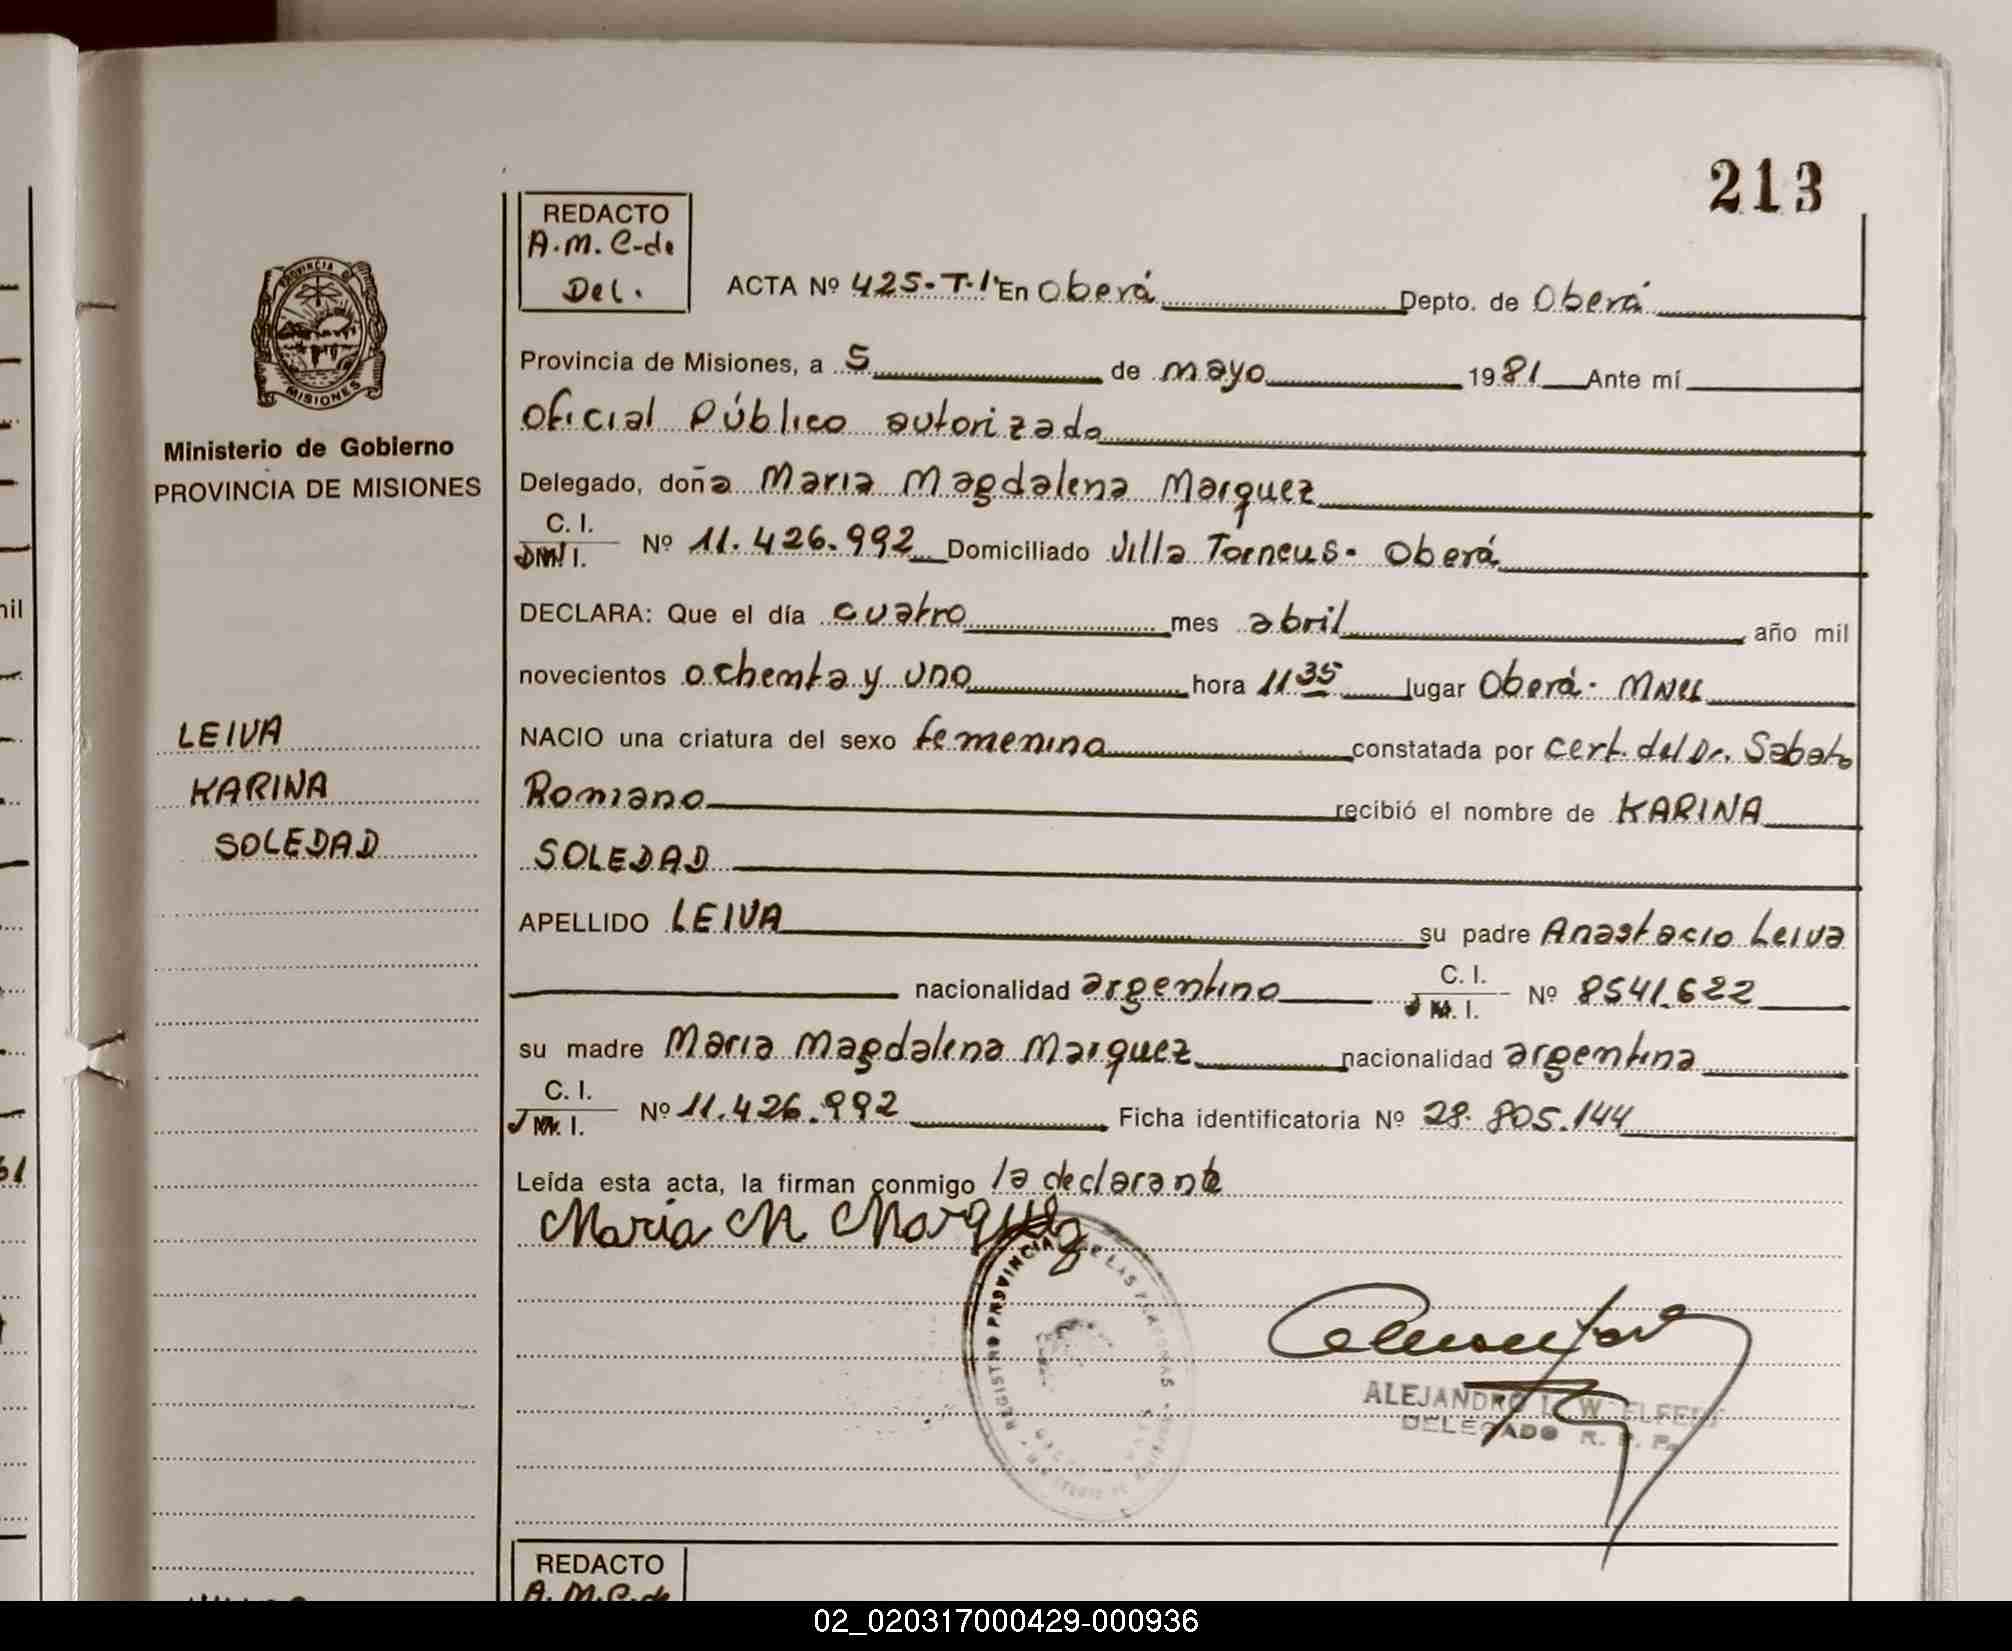 213
REDACTO
A.M.C-de
Del.
ACTA Nº 425-T-1º En Oberá Depto. de Oberá
Provincia de Misiones, a 5 de mayo 1981 Ante mí
Oficial Público autorizado
Delegado, doña Maria Magdalena Marquez
C. I.
D.N.I. Nº 11.426.992 Domiciliado Villa Torneus - Oberá
DECLARA: Que el día cuatro mes abril año mil
novecientos ochenta y uno hora 11 35 lugar Oberá - Mnes
NACIO una criatura del sexo femenino constatada por cert. del Dr. Sabato
Romano recibió el nombre de KARINA
SOLEDAD
APELLIDO LEIVA su padre Anastacio Leiva
nacionalidad argentino C. I. Nº 8541.622
su madre Maria Magdalena Marquez nacionalidad argentina
C. I.
Nº 11.426.992 Ficha identificatoria Nº 28.805.144
Leída esta acta, la firman conmigo la declarante
Maria M Marquez
REGISTRO PROVINCIAL DE LAS PERSONAS
ALEJANDRO
DELEGADO R. P. P.
PROVINCIA DE
MISIONES
Ministerio de Gobierno
PROVINCIA DE MISIONES
LEIVA
KARINA
SOLEDAD
REDACTO
A.M.C-de
02_020317000429-000936